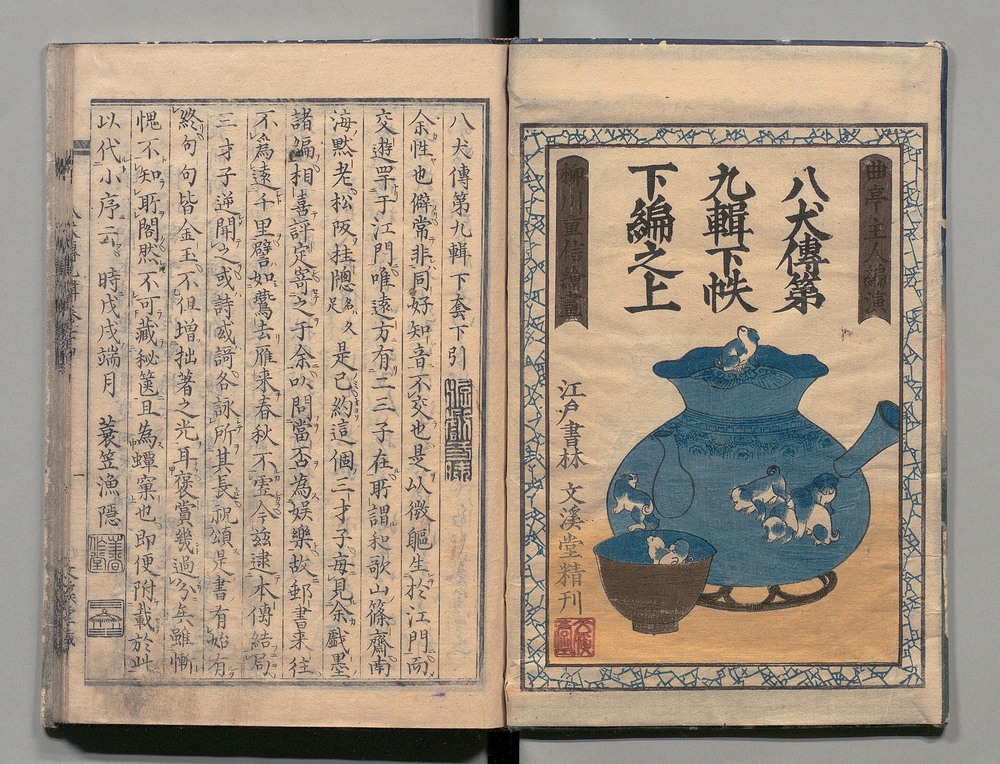 曲亭主人編演
八犬傳第
九輯下帙
下編之上
柳川重信繪畫
江戸書林 文溪堂精刊
八犬傳第九輯下套下引
余性也僻常非同好知音不交也是以微軀生於江門而
交遊罕于江門唯遠方有二三子在所謂和歌山篠齋南
海黙老松阪桂窻足名久是已約這個三才子每見余戲墨
諸編相喜評定寄之于余以問當否為娯樂故郵書来往
不為遠千里譬如鷰去雁来春秋不虚今茲逮本傳結局
三才子逆聞之或詩或謌各詠所其長祝頌是書有始有
終句句皆金玉不但增拙著之光耳褒賞幾過分矣雖慚
愧不知所閣然不可藏秘篋且為蟫窠也即便附載於此
以代小序云 時戊戌端月 蓑笠漁隱